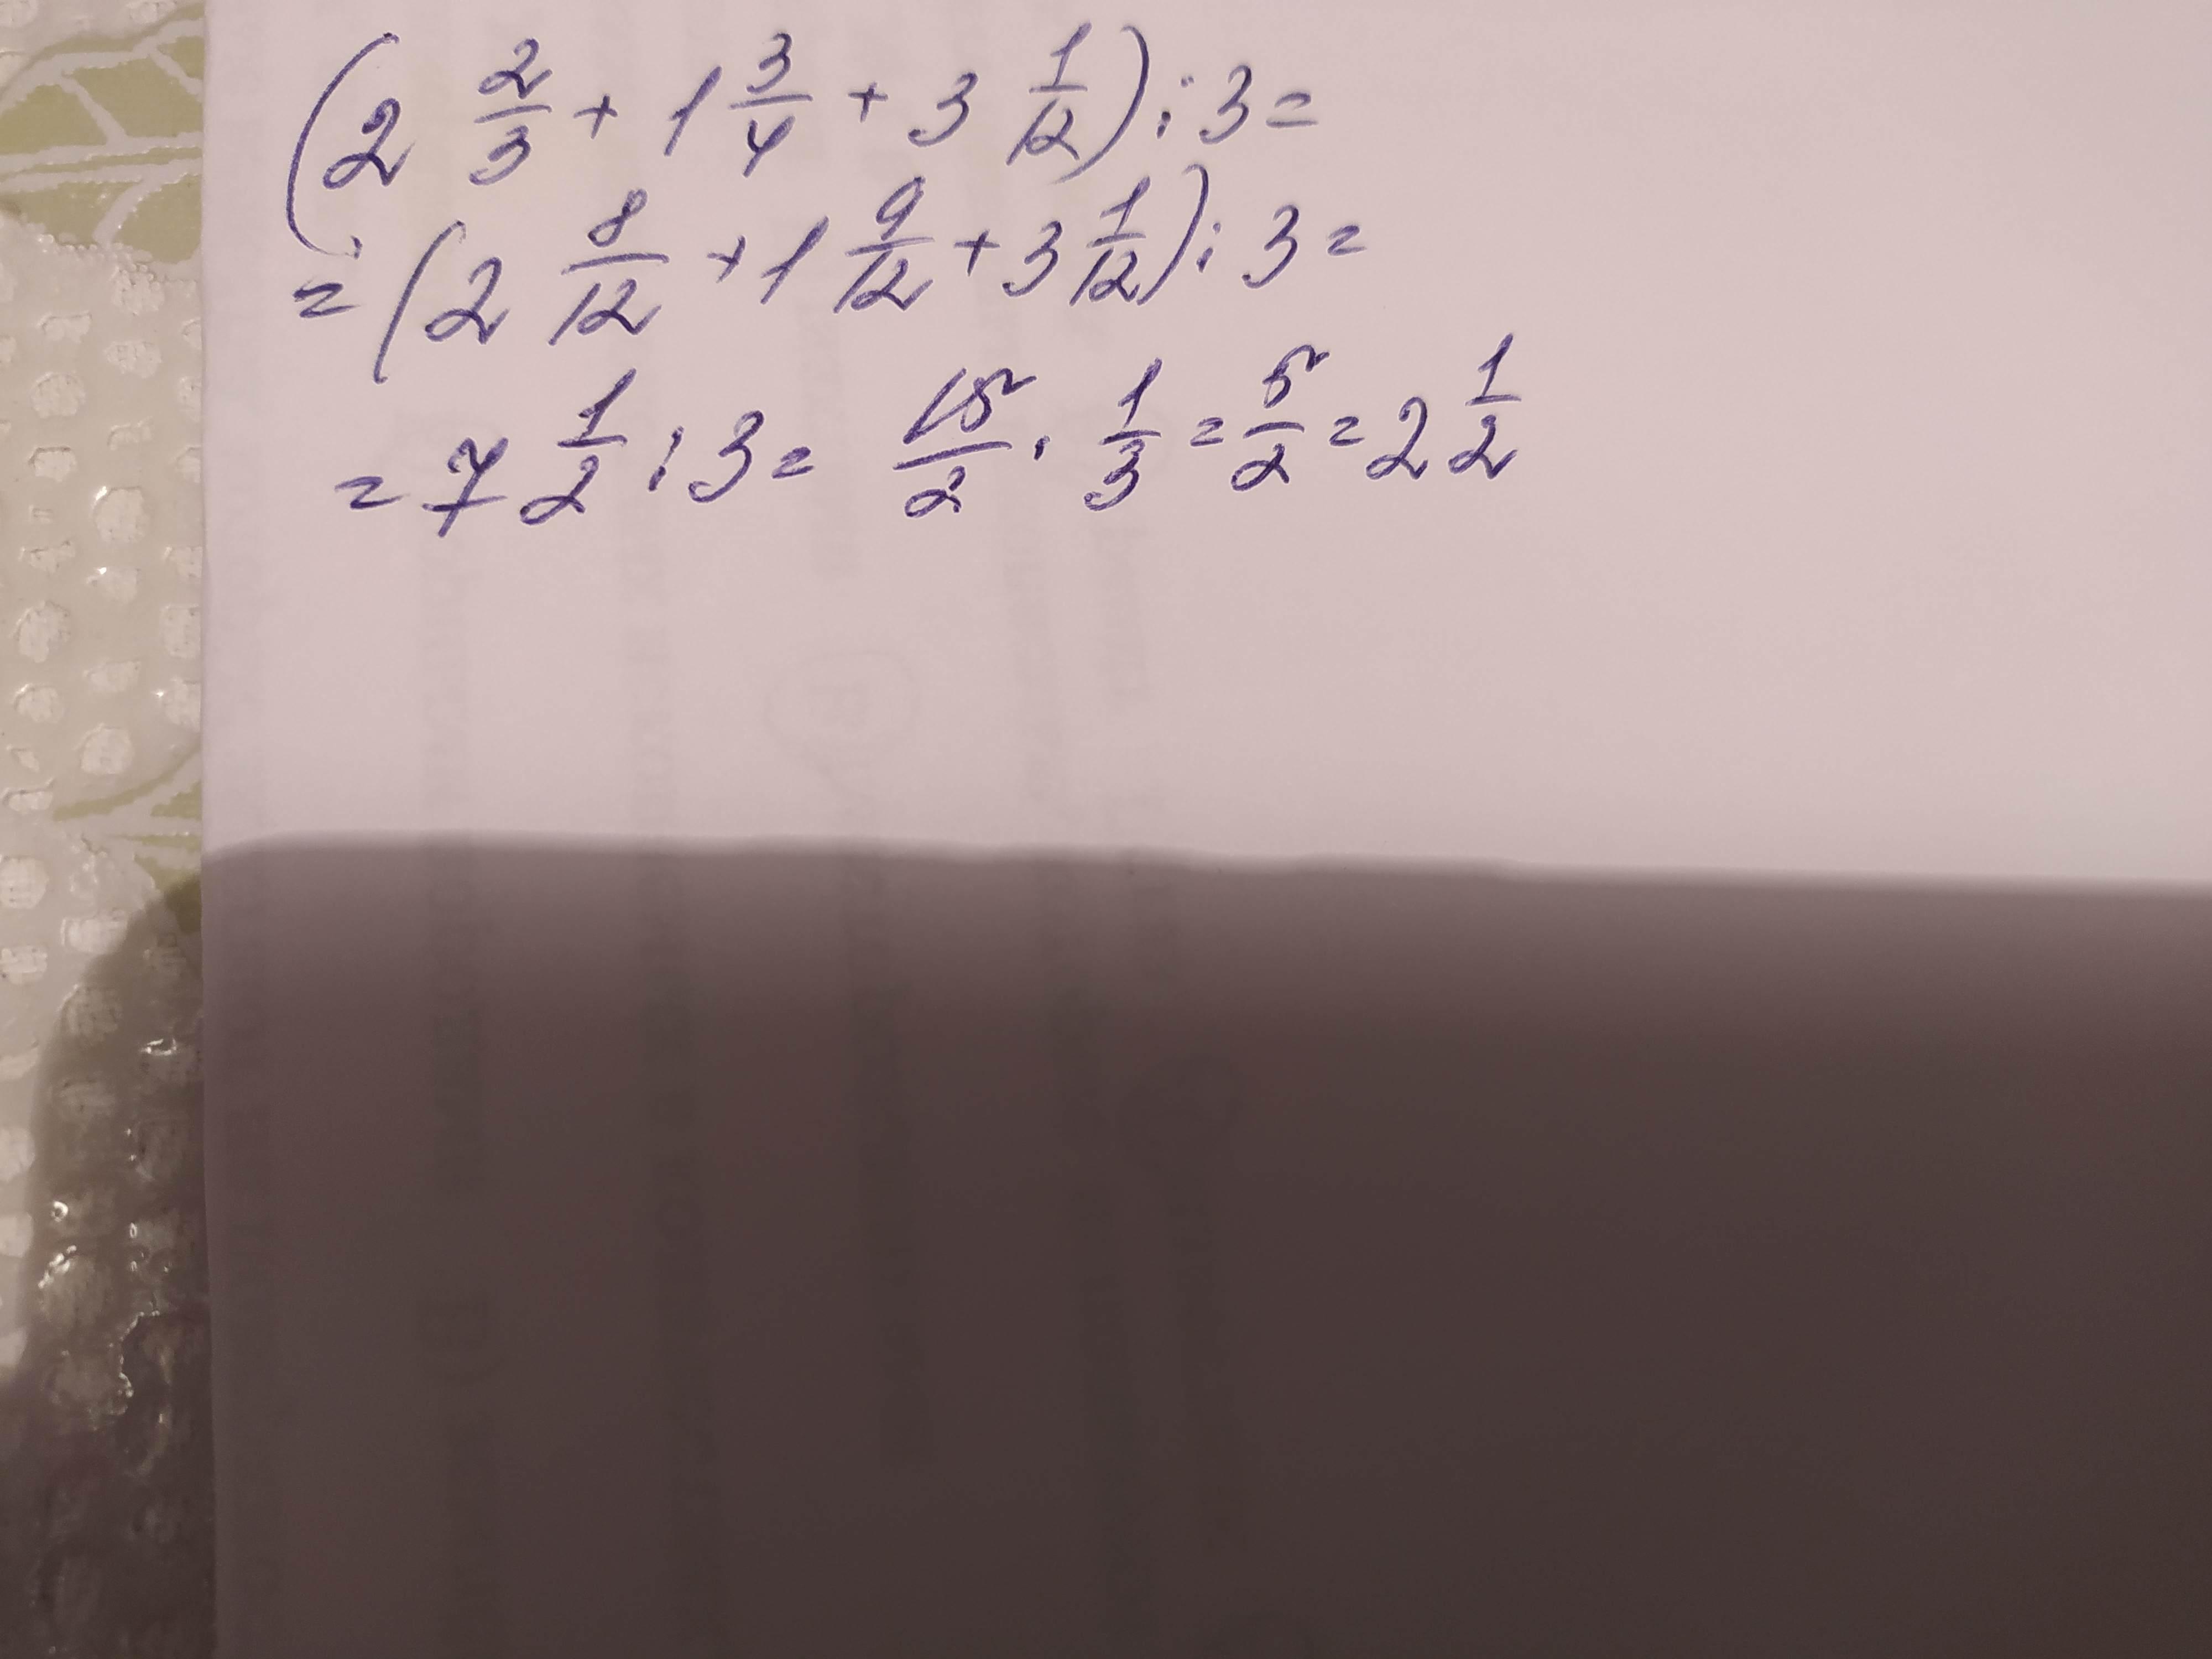 (2 2/3 + 1 3/4 + 3 1/12) : 3 =
= (2 8/12 + 1 9/12 + 3 1/12) : 3 =
= 7 1/2 : 3 = 15/2 · 1/3 = 5/2 = 2 1/2